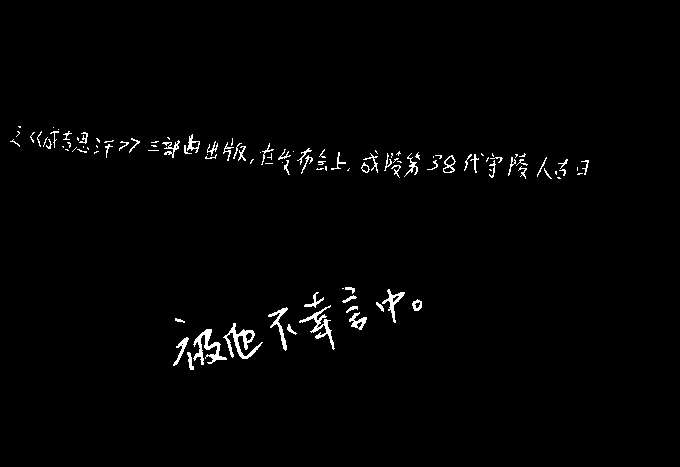 之《成吉思汗》三部曲出版,在发布会上,成陵第38代守陵人古日
被他不幸言中。